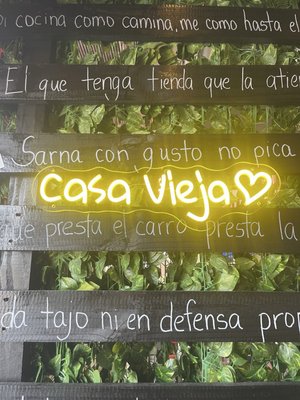 cocina como camina, me como hasta el
El que tenga tienda que la atie
Sarna con gusto no pica
Casa Vieja
que presta el carro presta la
da tajo ni en defensa prop